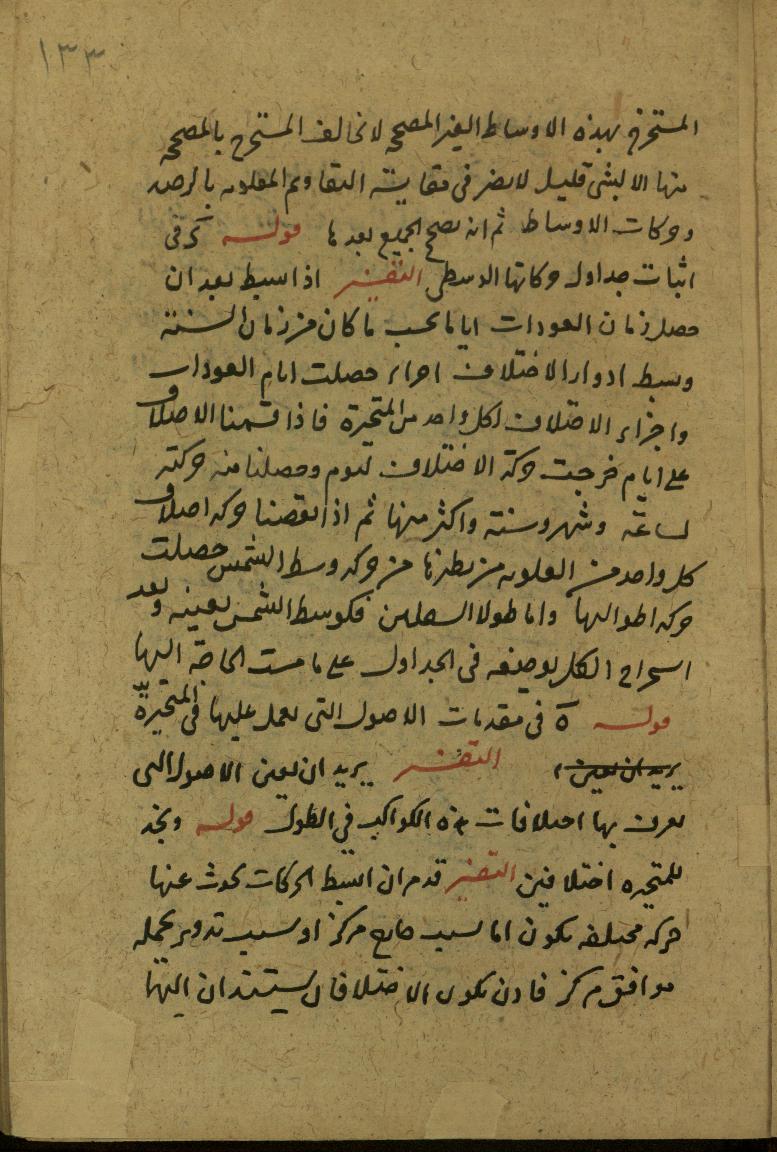 ١٣٣
المستخرج بهذه الاوساط الغير المصححه لا تخالف المستخرج بالمصححه
منها الا بشئ قليل لا يضر فى مقايسة التقاويم المعلومه بالرصد
وحركات الاوساط ثم انه يصحح الجميع بعدها قوله كـ فى
اثبات جداول حركاتها الوسطى التفسير اذا بسط بعد ان
حصل زمان العودات اياما بحسب ما كان من زمان السنة
وبسط ادوار الاختلاف اجزاء حصلت ايام العودات
واجزاء الاختلاف لكل واحد من المتحيرة فاذا قسمنا الاختلاف
على ايام خرجت حركة الاختلاف ليوم وحصلنا منه حركته
لساعة وشهر وسنة واكثر منها ثم اذا نقصنا حركه اختلاف
كل واحد من العلويه من نظيرها من حركه وسط الشمس حصلت
حركه اطوالها واما طولا السفليين فكوسط الشمس بعينه وبعد
استخراج الكل يوضع فى الجداول على ما مست الحاجة اليها
قوله ة فى مقدمات الاصول التى يعمل عليها فى المتحيرة
يريد ان يعين التفسير يريد ان يعين الاصول التى
يعرف بها اختلافات هذه الكواكب فى الطول قوله ونجد
للمتحيره اختلافين التفسير قد مر ان ابسط الحركات يحدث عنها
حركه مختلفه يكون اما بسبب خارج مركز او بسبب تدوير يحمله
موافق مركز فاذن يكون الاختلافان يستندان اليها